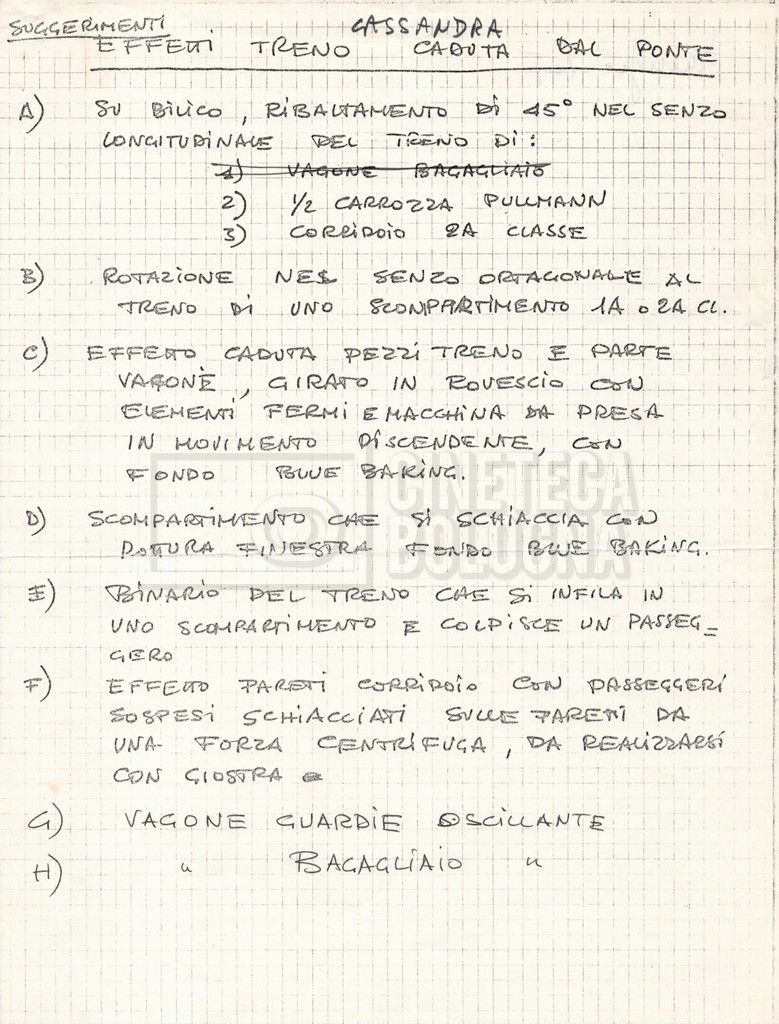 SUGGERIMENTI
CASSANDRA
EFFETTI TRENO CADUTA DAL PONTE
A) SU BILICO, RIBALTAMENTO DI 45° NEL SENZO
LONGITUDINALE DEL TRENO DI:
1) VAGONE BAGAGLIAIO
2) 1/2 CARROZZA PULLMANN
3) CORRIDOIO 2A CLASSE
B) ROTAZIONE NEL SENZO ORTAGONALE AL
TRENO DI UNO SCONPARTIMENTO 1A o 2A CL.
C) EFFETTO CADUTA PEZZI TRENO E PARTE
VAGONE, GIRATO IN ROVESCIO CON
ELEMENTI FERMI E MACCHINA DA PRESA
IN MOVIMENTO DISCENDENTE, CON
FONDO BLUE BAKING.
D) SCOMPARTIMENTO CHE SI SCHIACCIA CON
ROTTURA FINESTRA FONDO BLUE BAKING.
E) BINARIO DEL TRENO CHE SI INFILA IN
UNO SCOMPARTIMENTO E COLPISCE UN PASSEG=
GERO
F) EFFETTO PARETI CORRIDOIO CON PASSEGGERI
SOSPESI SCHIACCIATI SULLE PARETI DA
UNA FORZA CENTRIFUGA, DA REALIZZARSI
CON GIOSTRA
G) VAGONE GUARDIE OSCILLANTE
H) " BAGAGLIAIO "
CINETECA
BOLOGNA